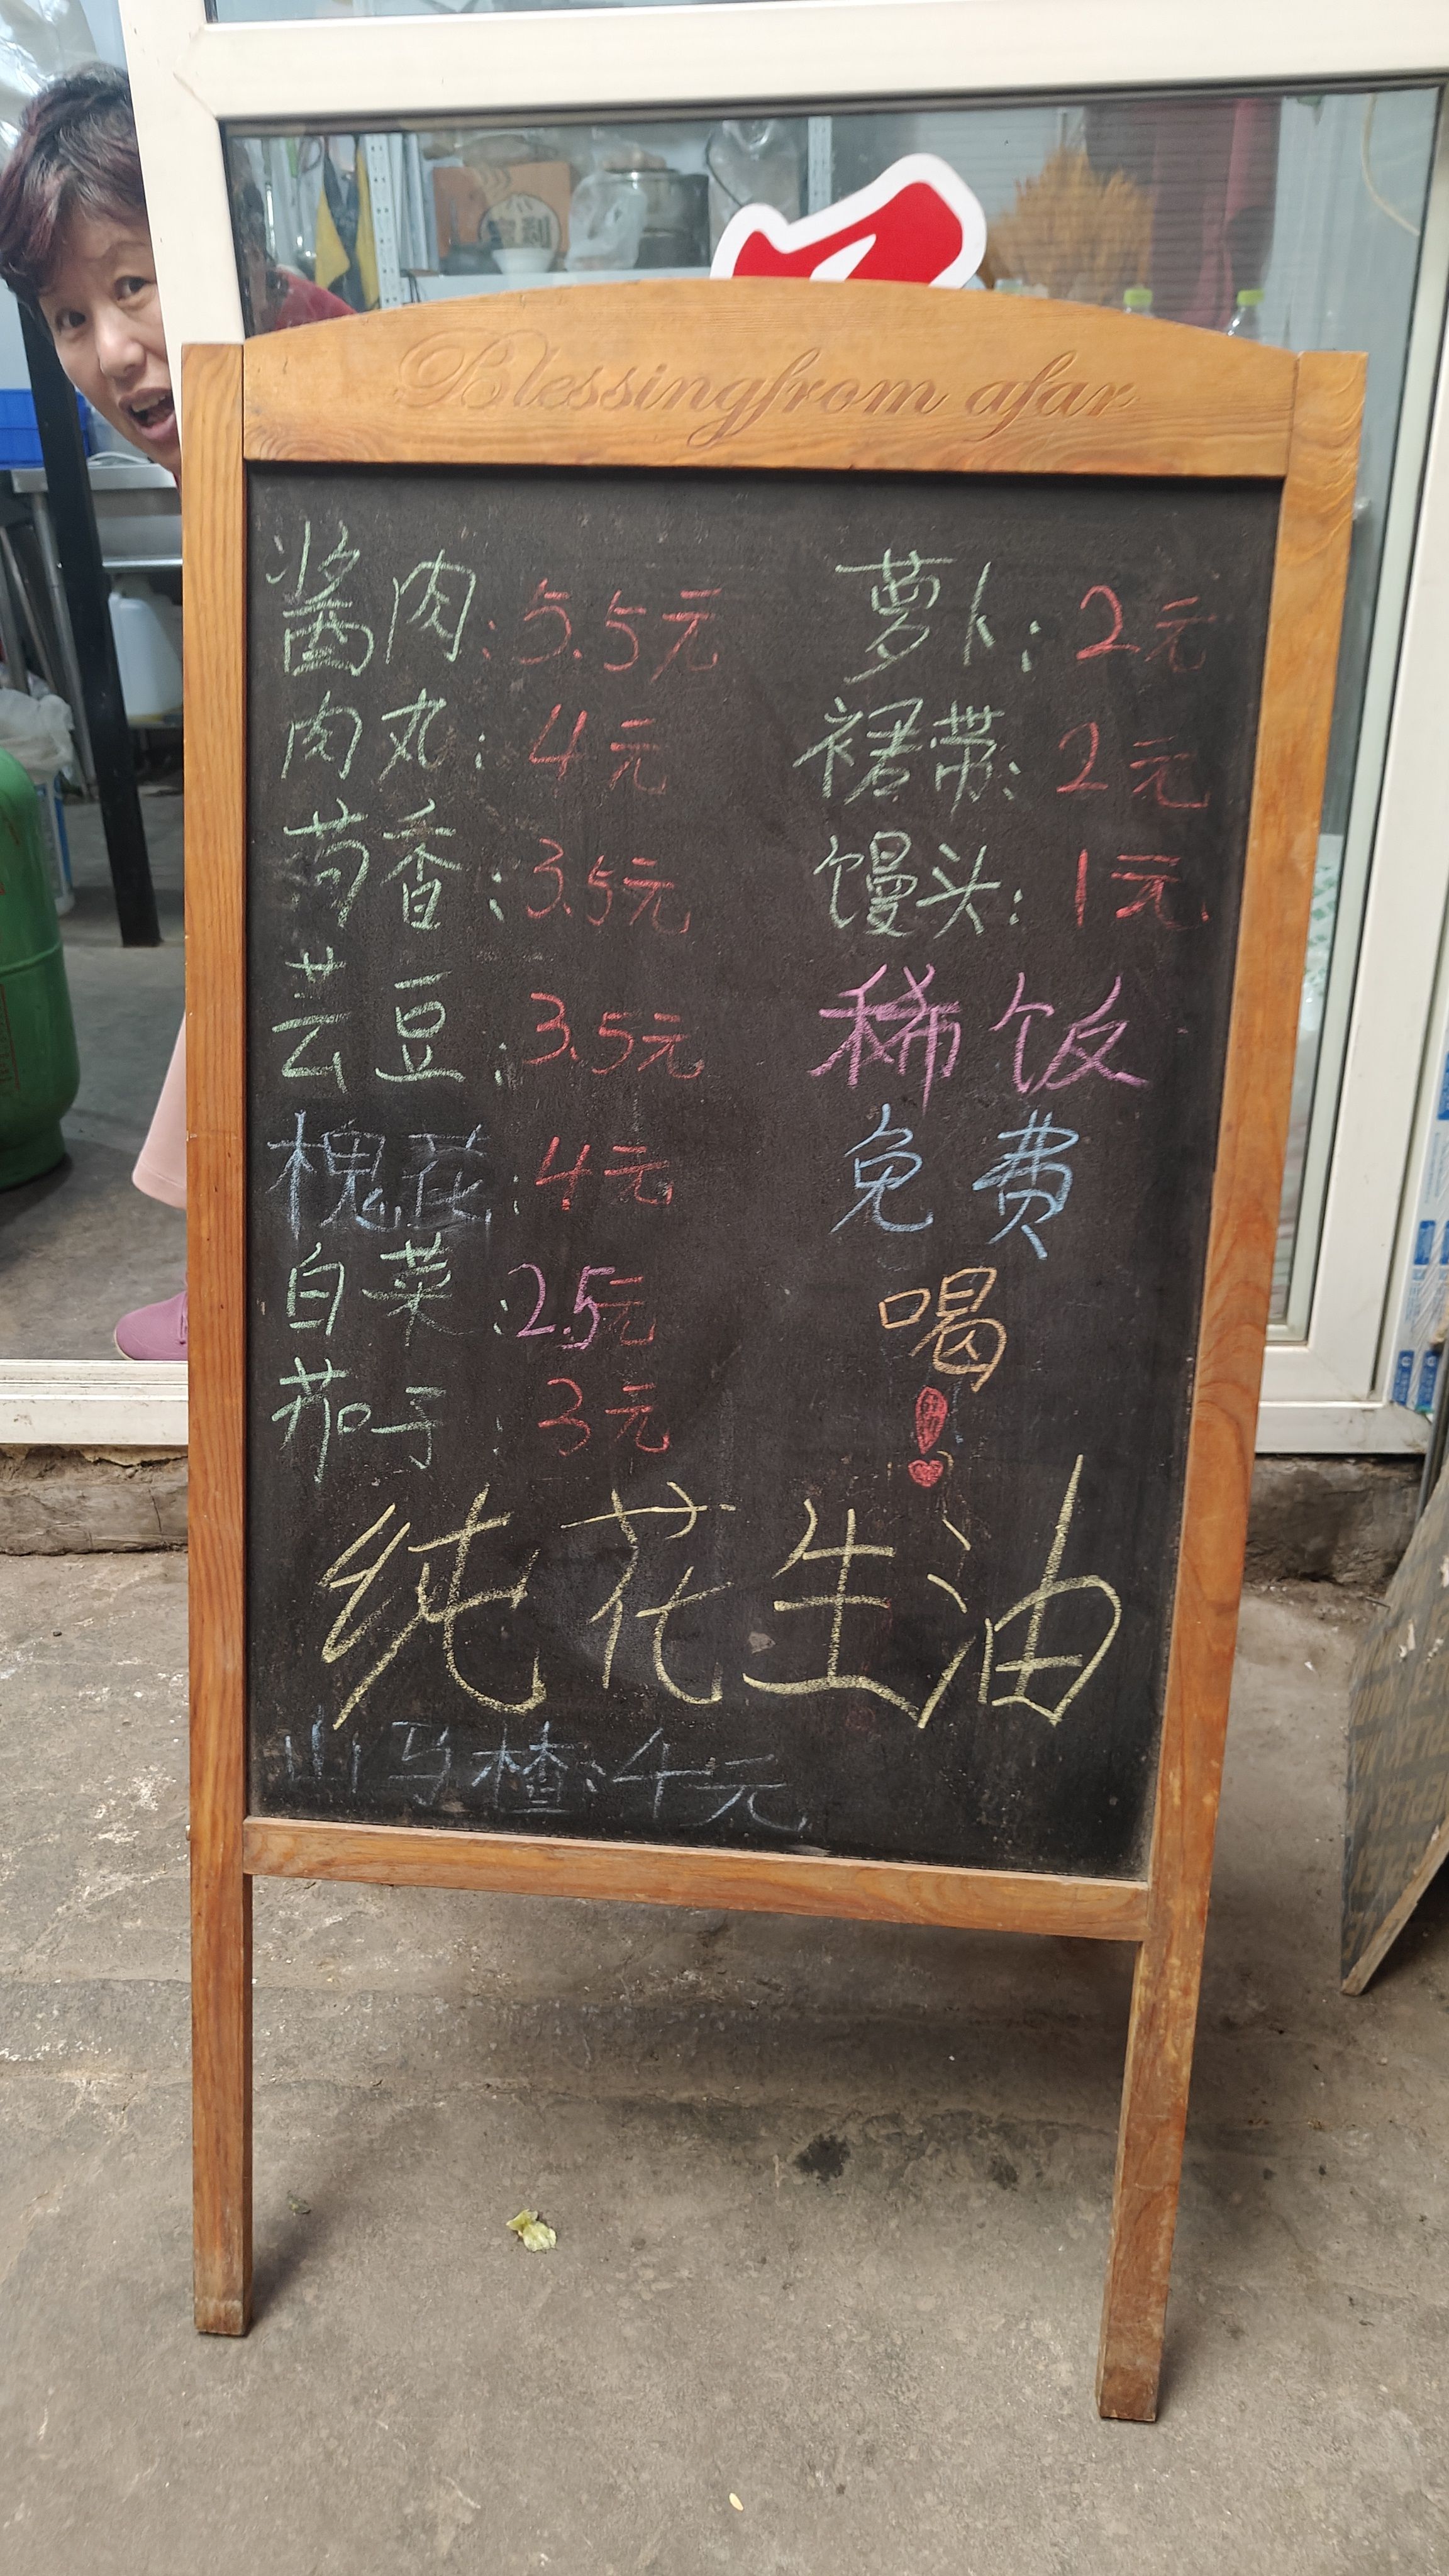 Blessingfrom afar
酱肉:5.5元
肉丸:4元
茴香:3.5元
芸豆:3.5元
槐花:4元
白菜:2.5元
茄子:3元
萝卜:2元
裙带:2元
馒头:1元
稀饭
免费
喝
!
纯花生油
山马楂:4元